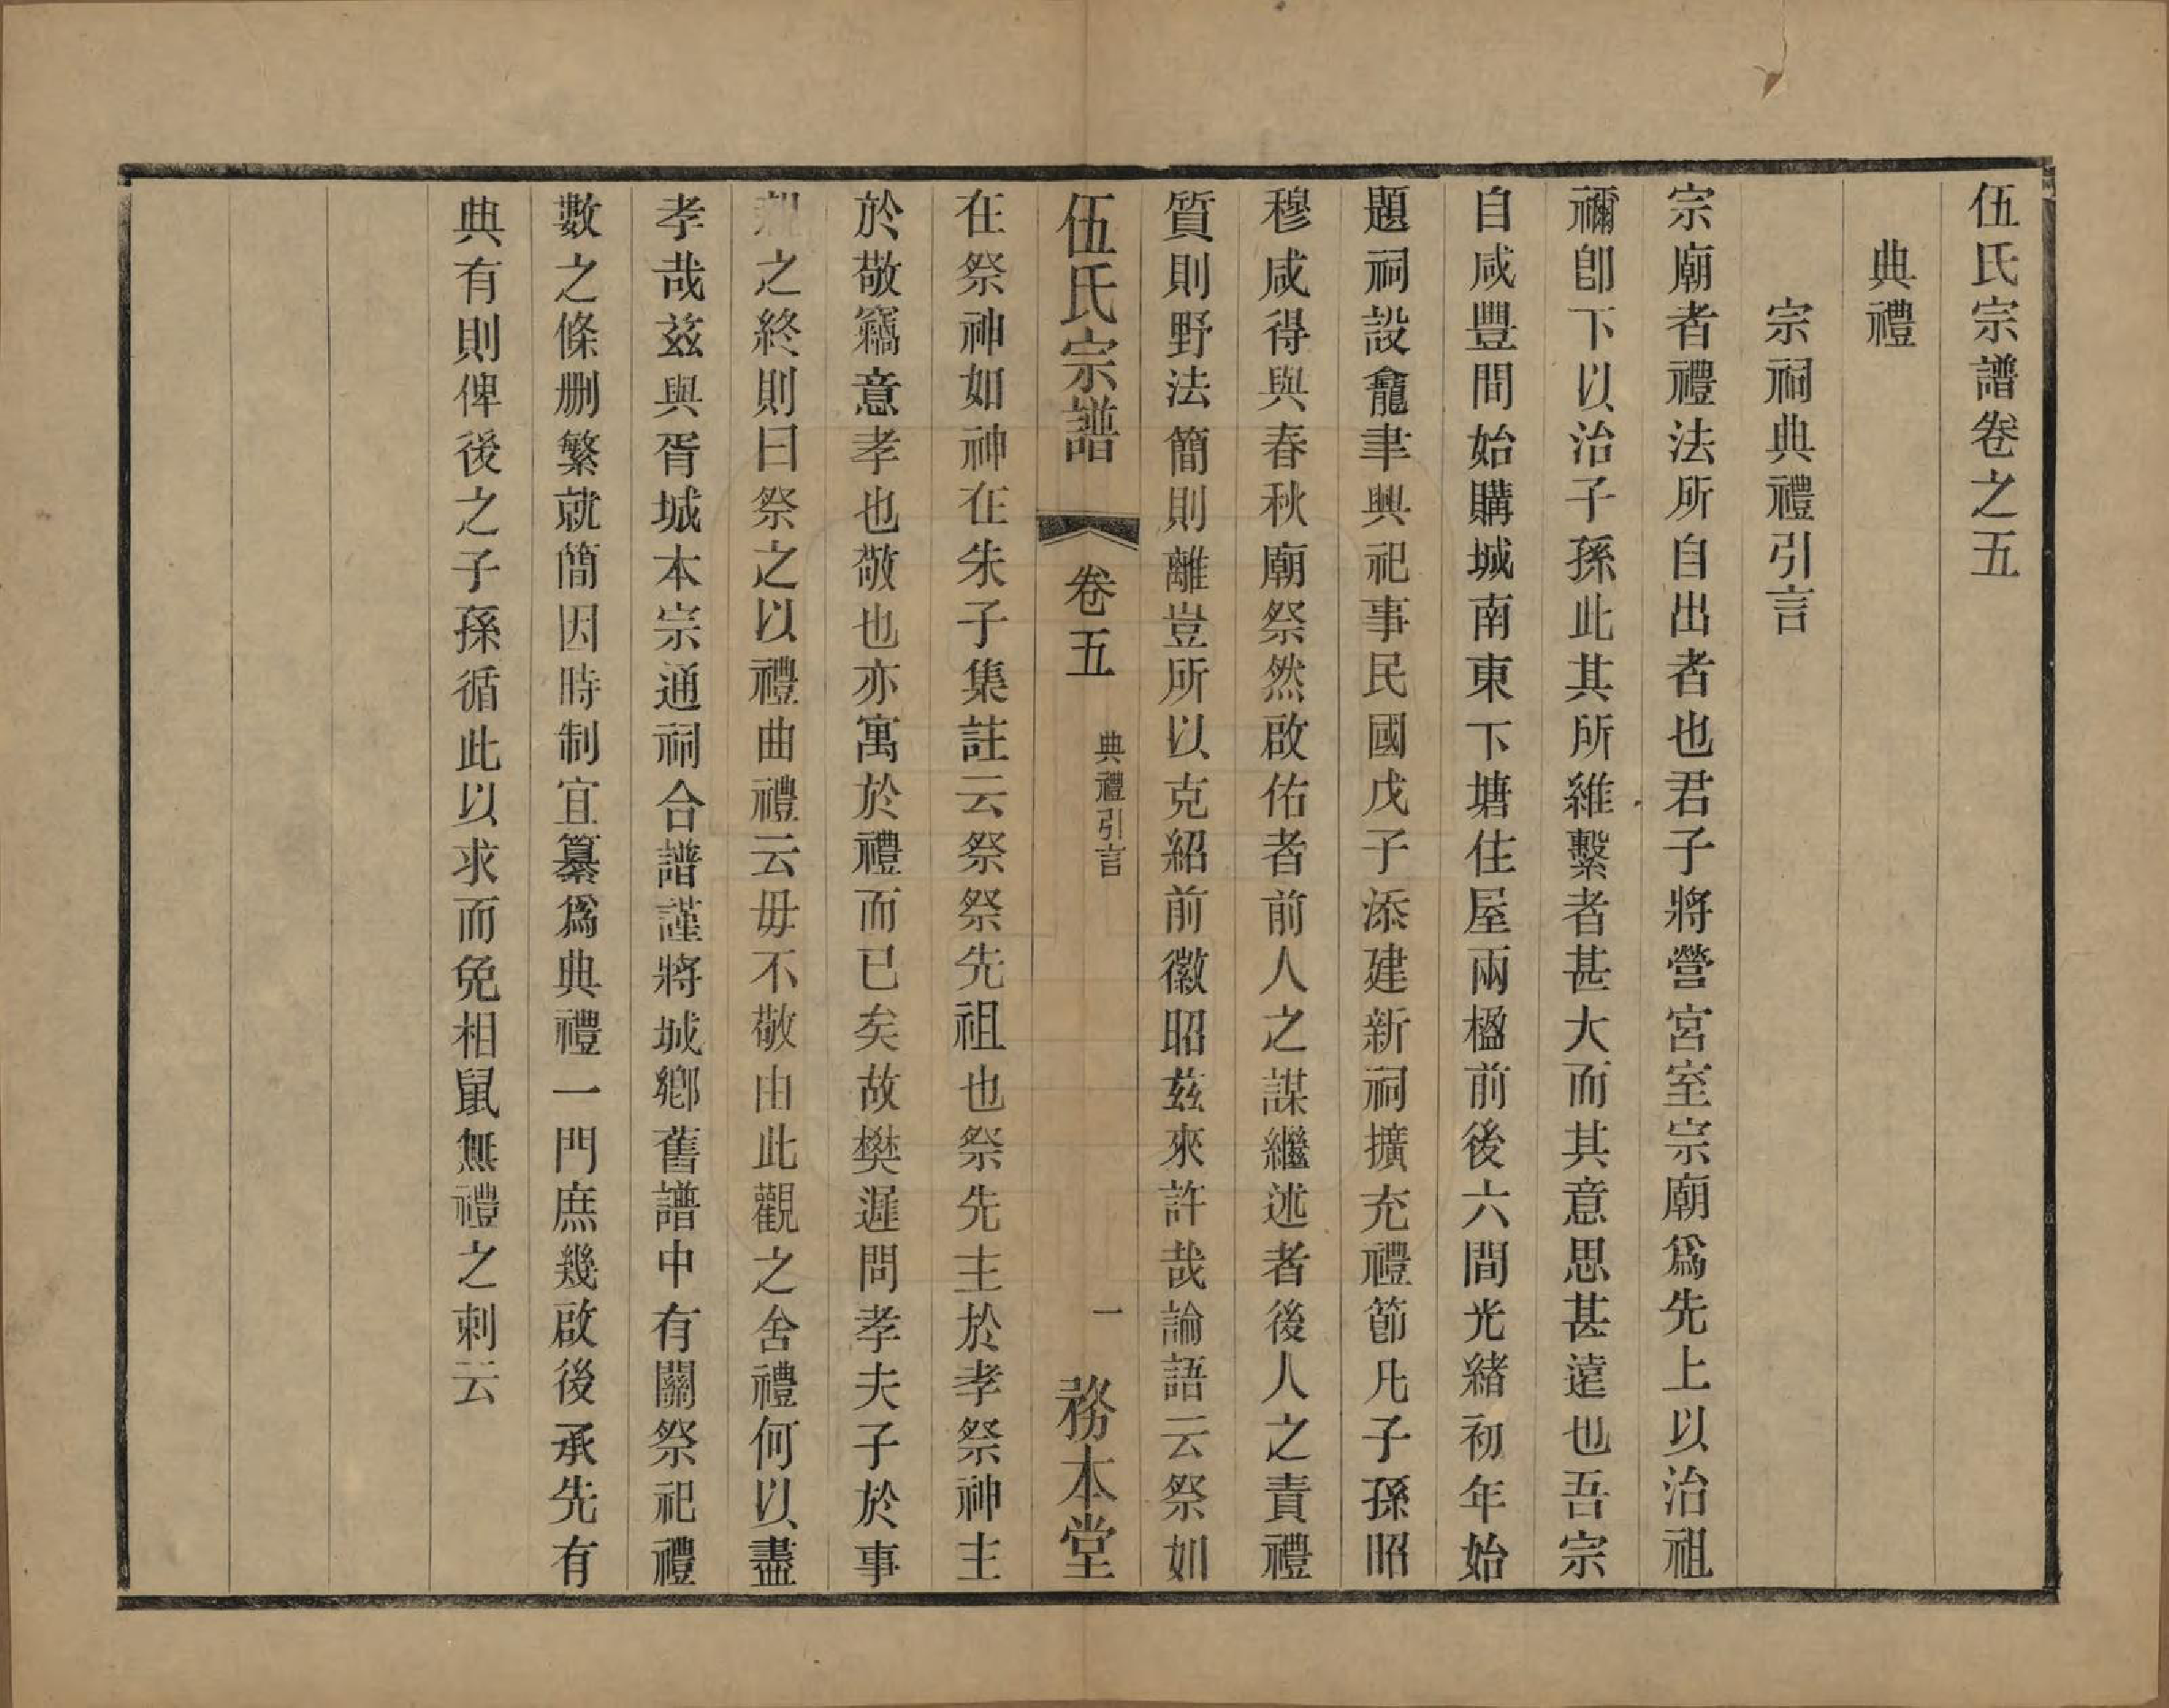 伍氏宗譜卷之五
典禮
宗祠典禮引言
宗廟者禮法所自出者也君子將營宮室宗廟爲先上以治祖
禰卽下以治子孫此其所維繫者甚大而其意思甚遠也吾宗
自咸豐間始購城南東下塘住屋兩楹前後六間光緒初年始
題祠設龕聿興祀事民國戊子添建新祠擴充禮節凡子孫昭
穆咸得與春秋廟祭然啟佑者前人之謀繼述者後人之責禮
質則野法簡則離豈所以克紹前徽昭茲來許哉論語云祭如
伍氏宗譜 卷五 典禮引言 一 務本堂
在祭神如神在朱子集註云祭祭先祖也祭先主於孝祭神主
於敬竊意孝也敬也亦寓於禮而已矣故樊遲問孝夫子於事
親之終則曰祭之以禮曲禮云毋不敬由此觀之舍禮何以盡
孝哉茲與胥城本宗通祠合譜謹將城鄉舊譜中有關祭祀禮
數之條删繁就簡因時制宜纂爲典禮一門庶幾啟後承先有
典有則俾後之子孫循此以求而免相鼠無禮之刺云